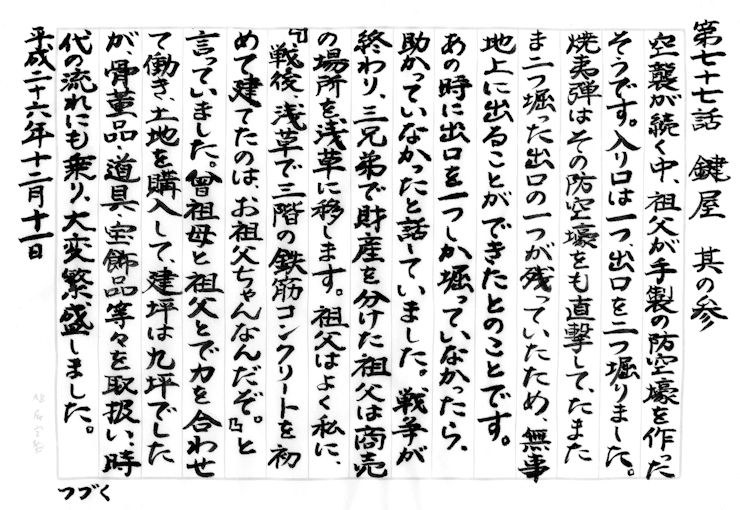 第七十七話 鍵屋 其の参
空襲が続く中、祖父が手製の防空壕を作った
そうです。入り口は一つ、出口を二つ堀りました。
焼夷弾はその防空壕をも直撃して、たまた
ま二つ堀った出口の一つが残っていたため、無事
地上に出ることができたとのことです。
あの時に出口を一つしか堀っていなかったら、
助かっていなかったと話していました。戦争が
終わり、三兄弟で財産を分けた祖父は商売
の場所を、浅草に移します。祖父はよく私に、
『戦後、浅草で三階の鉄筋コンクリートを初
めて建てたのは、お祖父ちゃんなんだぞ。』と
言っていました。曾祖母と祖父とで力を合わせ
て働き、土地を購入して、建坪は九坪でした
が、骨董品・道具・宝飾品等々を取扱い、時
代の流れにも乗り、大変繁盛しました。
平成二十六年十二月十一日
つづく